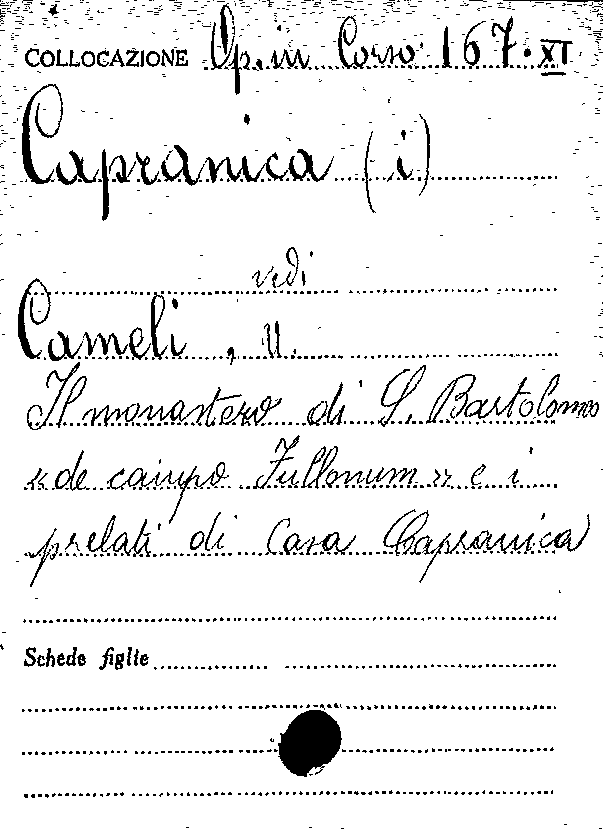 COLLOCAZIONE Op. in Corso 167. XI
Capranica (i)
vedi
Cameli, U.
Il monastero di S. Bartolomeo
«de campo Fullonum» e i
prelati di Casa Capranica
Schede figlie